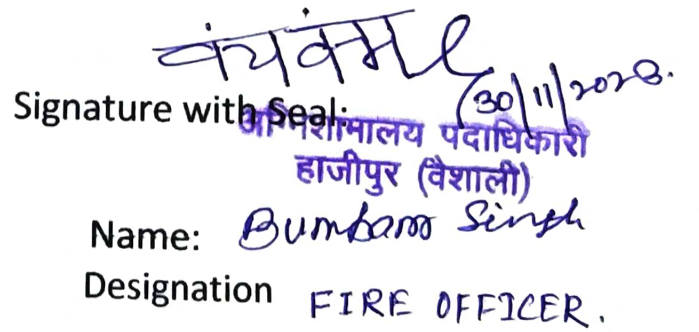 30/11/2023.
Signature with Seal:
अग्निशामालय पदाधिकारी
हाजीपुर (वैशाली)
Name: Bumbam Singh
Designation FIRE OFFICER.